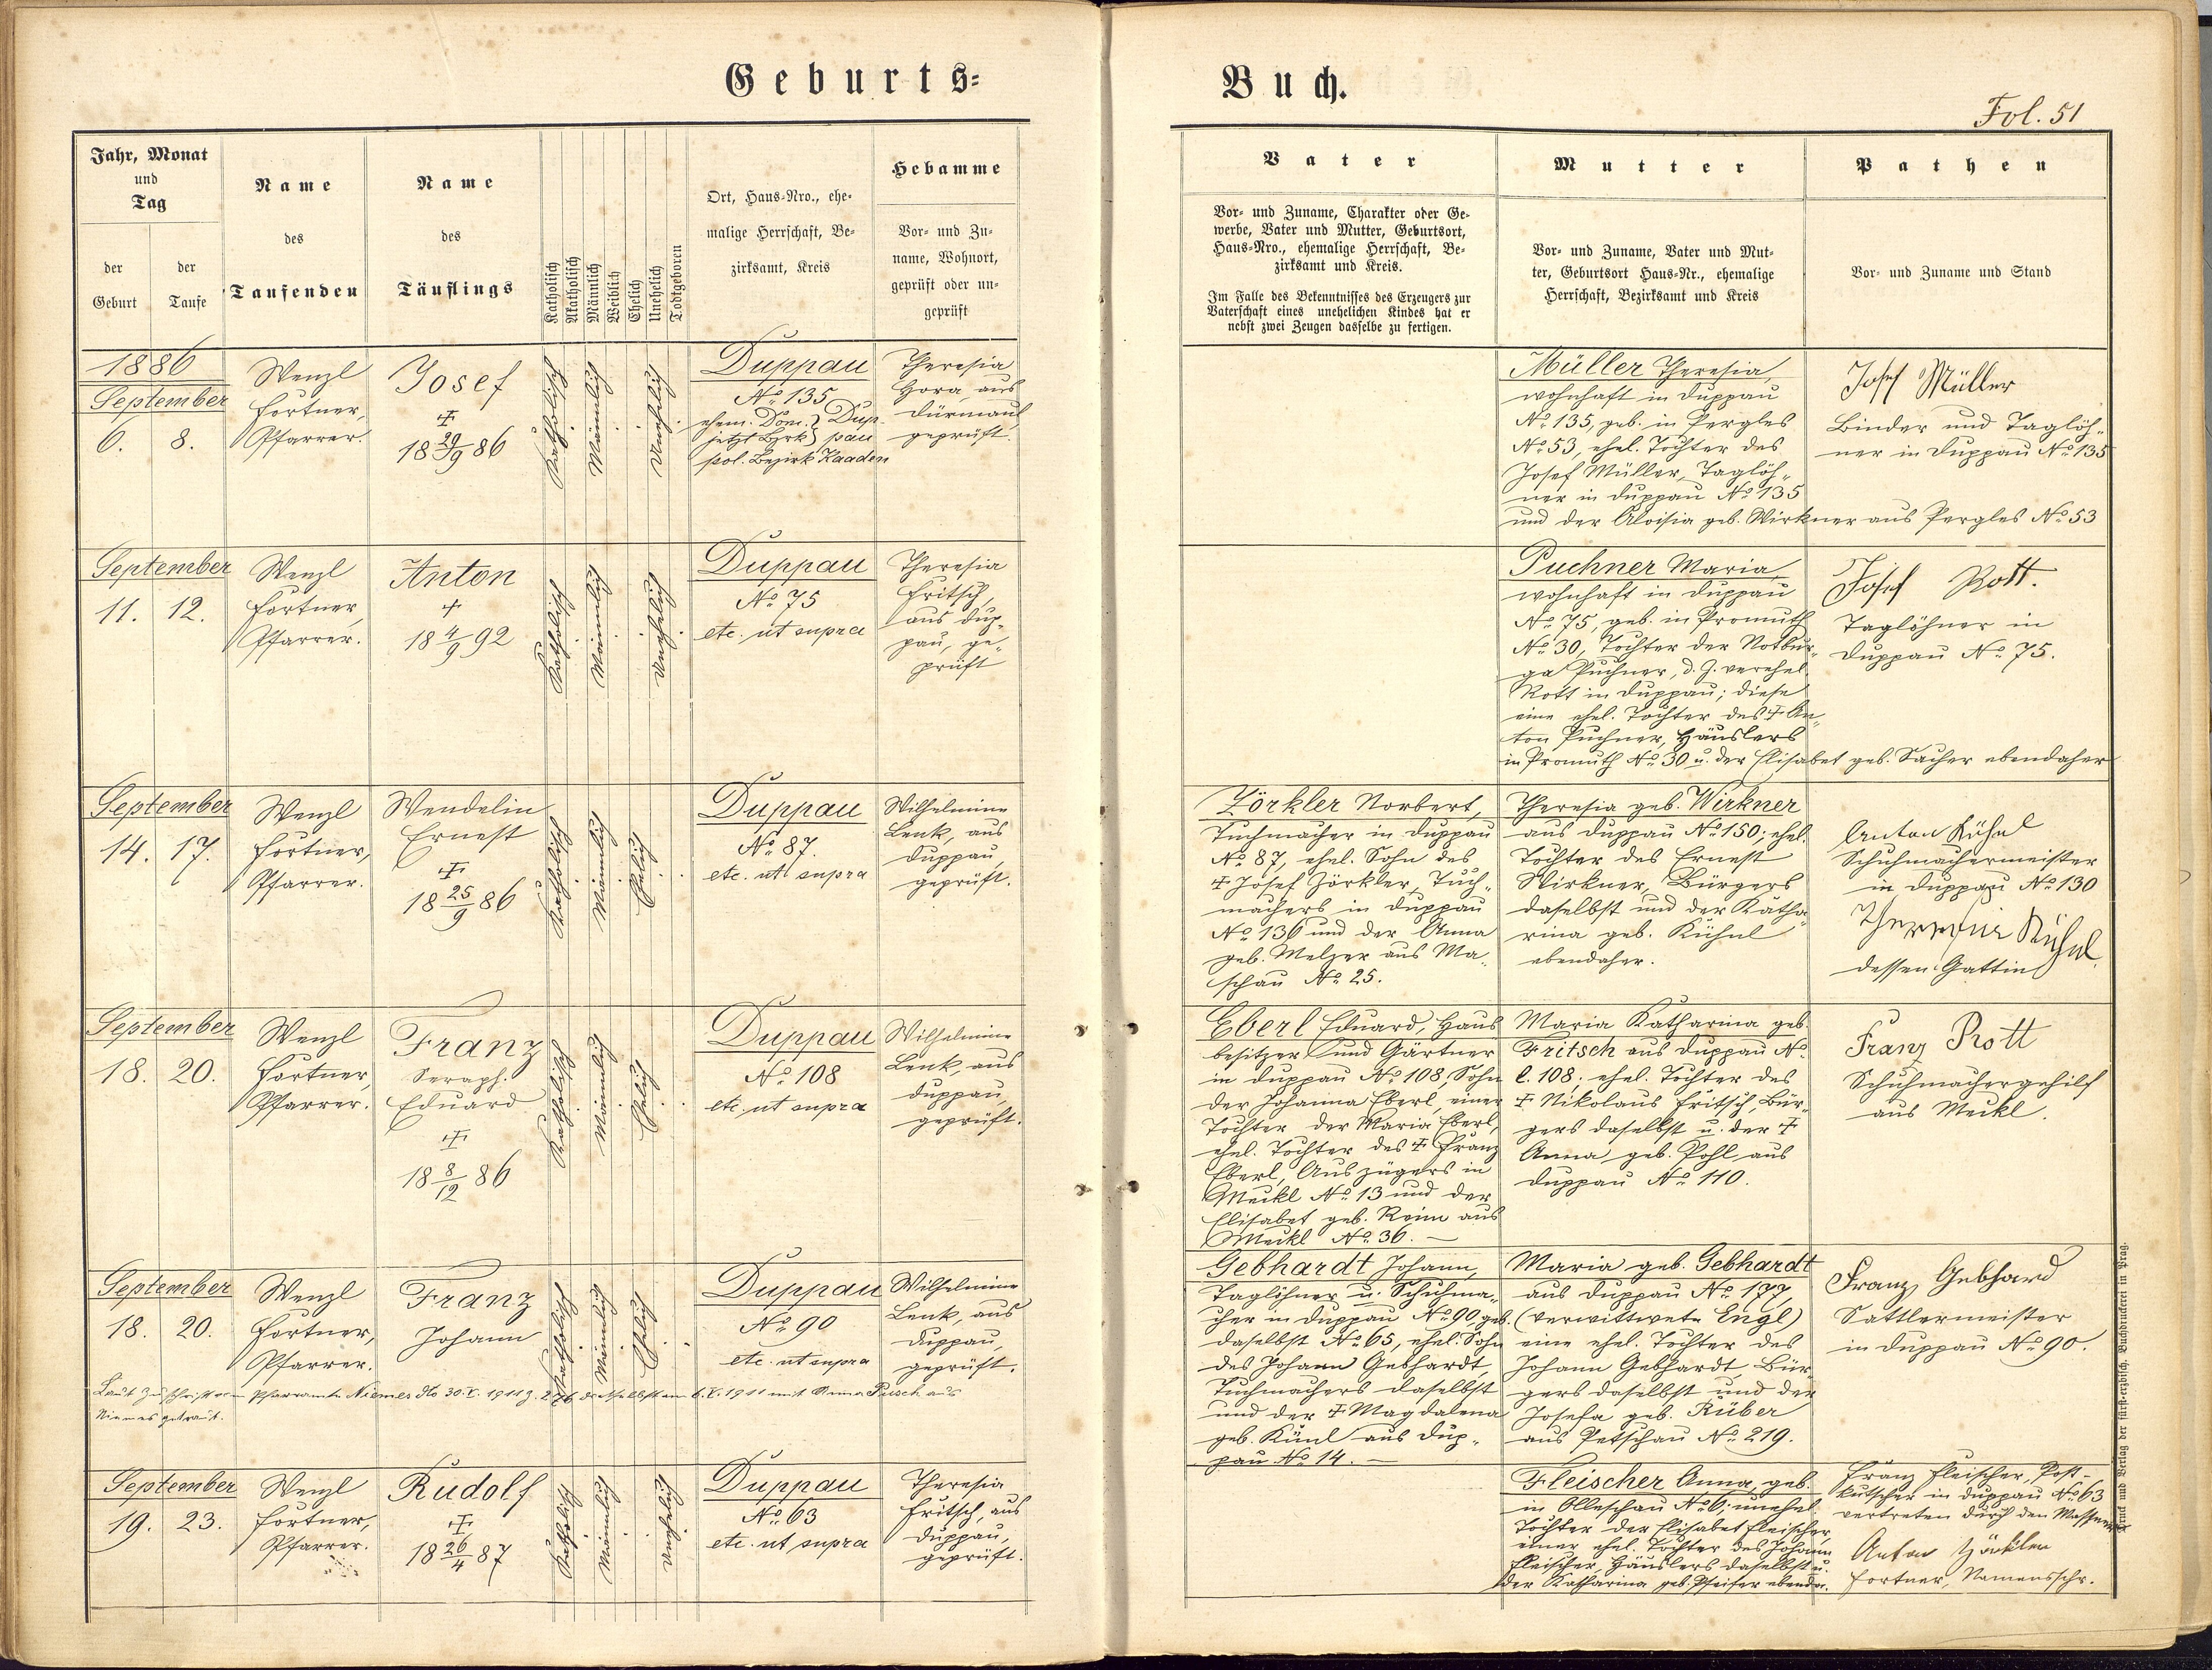 Geburts=
Buch.
Fol. 51
Jahr, Monat
und
Tag
der
Geburt
der
Taufe
Name
des
Taufenden
Name
des
Täuflings
Katholisch
Akatholisch
Männlich
Weiblich
Ehelich
Unehelich
Todtgeboren
Ort, Haus=Nro., ehe=
malige Herrschaft, Be=
zirksamt, Kreis
Hebamme
Vor= und Zu=
name, Wohnort,
geprüft oder un=
geprüft
Vater
Vor= und Zuname, Charakter oder Ge=
werbe, Vater und Mutter, Geburtsort,
Haus=Nro., ehemalige Herrschaft, Be=
zirksamt und Kreis.
Im Falle des Bekenntnisses des Erzeugers zur
Vaterschaft eines unehelichen Kindes hat er
nebst zwei Zeugen dasselbe zu fertigen.
Mutter
Vor= und Zuname, Vater und Mut=
ter, Geburtsort Haus=Nr., ehemalige
Herrschaft, Bezirksamt und Kreis
Pathen
Vor= und Zuname und Stand
1886
September
6. 8.
Wenzl
Fortner,
Pfarrer.
Josef
†
18 29/9 86
Katholisch
Männlich
Unehelich
Duppau
No 135
ehem. Dom. } Dup-
jetzt Bzrk } pau
pol. Bezirk Kaaden
Theresia
Hora, aus
Dürmaul,
geprüft.
Müller Theresia,
wohnhaft in Duppau
No 135, geb. in Pergles
No 53, ehel. Tochter des
Josef Müller, Taglöh-
ner in Duppau No 135
und der Aloisia geb. Wirkner aus Pergles No 53
Josef Müller
Binder und Taglöh-
ner in Duppau No 135
September
11. 12.
Wenzl
Fortner,
Pfarrer.
Anton
†
18 4/9 92
Katholisch
Männlich
Unehelich
Duppau
No 75
etc. ut supra
Theresia
Fritsch,
aus Dup-
pau, ge-
prüft
Puchner Maria,
wohnhaft in Duppau
No 75, geb. in Promuth
No 30, Tochter der Notbur-
ga Puchner, d. Z. verehel.
Rott in Duppau; diese
eine ehel. Tochter des † An-
ton Puchner, Häuslers
in Promuth No 30 u. der Elisabet geb. Sacher ebendaher
Josef Rott.
Taglöhner in
Duppau No 75.
September
14. 17.
Wenzl
Fortner,
Pfarrer.
Wendelin
Ernest
†
18 25/9 86
Katholisch
Männlich
Ehelich
Duppau
No 87.
etc. ut supra
Wilhelmine
Lenk, aus
Duppau,
geprüft.
Zörkler Norbert,
Tuchmacher in Duppau
No 87, ehel. Sohn des
† Josef Zörkler, Tuch-
machers in Duppau
No 136 und der Anna
geb. Melzer aus Ma-
schau No 25.
Theresia geb. Wirkner
aus Duppau No 150; ehel.
Tochter des Ernest
Wirkner, Bürgers
daselbst und der Katha-
rina geb. Kühnl
ebendaher.
Anton Kühnl
Schuhmachermeister
in Duppau No 130
Theresia Kühnl
dessen Gattin
September
18. 20.
Wenzl
Fortner,
Pfarrer.
Franz
Seraph.
Eduard
†
18 8/12 86
Katholisch
Männlich
Ehelich
Duppau
No 108
etc. ut supra
Wilhelmine
Lenk, aus
Duppau,
geprüft.
Eberl Eduard, Haus
besitzer und Gärtner
in Duppau No 108, Sohn
der Johanna Eberl, einer
Tochter der Maria Eberl,
ehel. Tochter des † Franz
Eberl, Auszüglers in
Meckl No 13 und der
Elisabet geb. Reim aus
Meckl No 36.
Maria Katharina geb.
Fritsch aus Duppau No
C. 108; ehel. Tochter des
† Nikolaus Fritsch, Bür-
gers daselbst u. der †
Anna geb. Pohl, aus
Duppau No 110.
Franz Rott
Schuhmachergehilf
aus Meckl.
September
18. 20.
Wenzl
Fortner,
Pfarrer.
Franz
Johann
Katholisch
Männlich
Ehelich
Duppau
No 90
etc. ut supra
Wilhelmine
Lenk, aus
Duppau,
geprüft.
Laut Zuschrift vom Pfarramte Niemes dto 30. X. 1911 Z. 276 daselbst am 6. X. 1911 mit Anna Peisch aus
Niemes getraut.
Gebhardt Johann,
Taglöhner u. Schuhma-
cher in Duppau No 90, geb.
daselbst No 65, ehel. Sohn
des Johann Gebhardt,
Tuchmachers daselbst
und der † Magdalena
geb. Künl aus Dup-
pau No 14.
Maria geb. Gebhardt
aus Duppau No 177,
(verwittwete Engl)
eine ehel. Tochter des
Johann Gebhardt, Bür-
gers daselbst und der
Josefa geb. Rüber
aus Petschau No 219.
Franz Gebhard
Sattlermeister
in Duppau No 90.
September
19. 23.
Wenzl
Fortner,
Pfarrer.
Rudolf
†
18 26/4 87
Katholisch
Männlich
Unehelich
Duppau
No 63
etc. ut supra
Theresia
Fritsch, aus
Duppau,
geprüft.
Fleischer Anna, geb.
in Olleschau No 6; unehel.
Tochter der Elisabet Fleischer,
einer ehel. Tochter des Johann
Fleischer Häuslers daselbst u.
der Katharina geb. Pfeifer ebenda.
Franz Fleischer, Post-
kutscher in Duppau No 63
vertreten durch den Messner
Anton Zörkler
Fortner, Namensschr.
Druck und Verlag der fürst-erzbisch. Buchdruckerei in Prag.